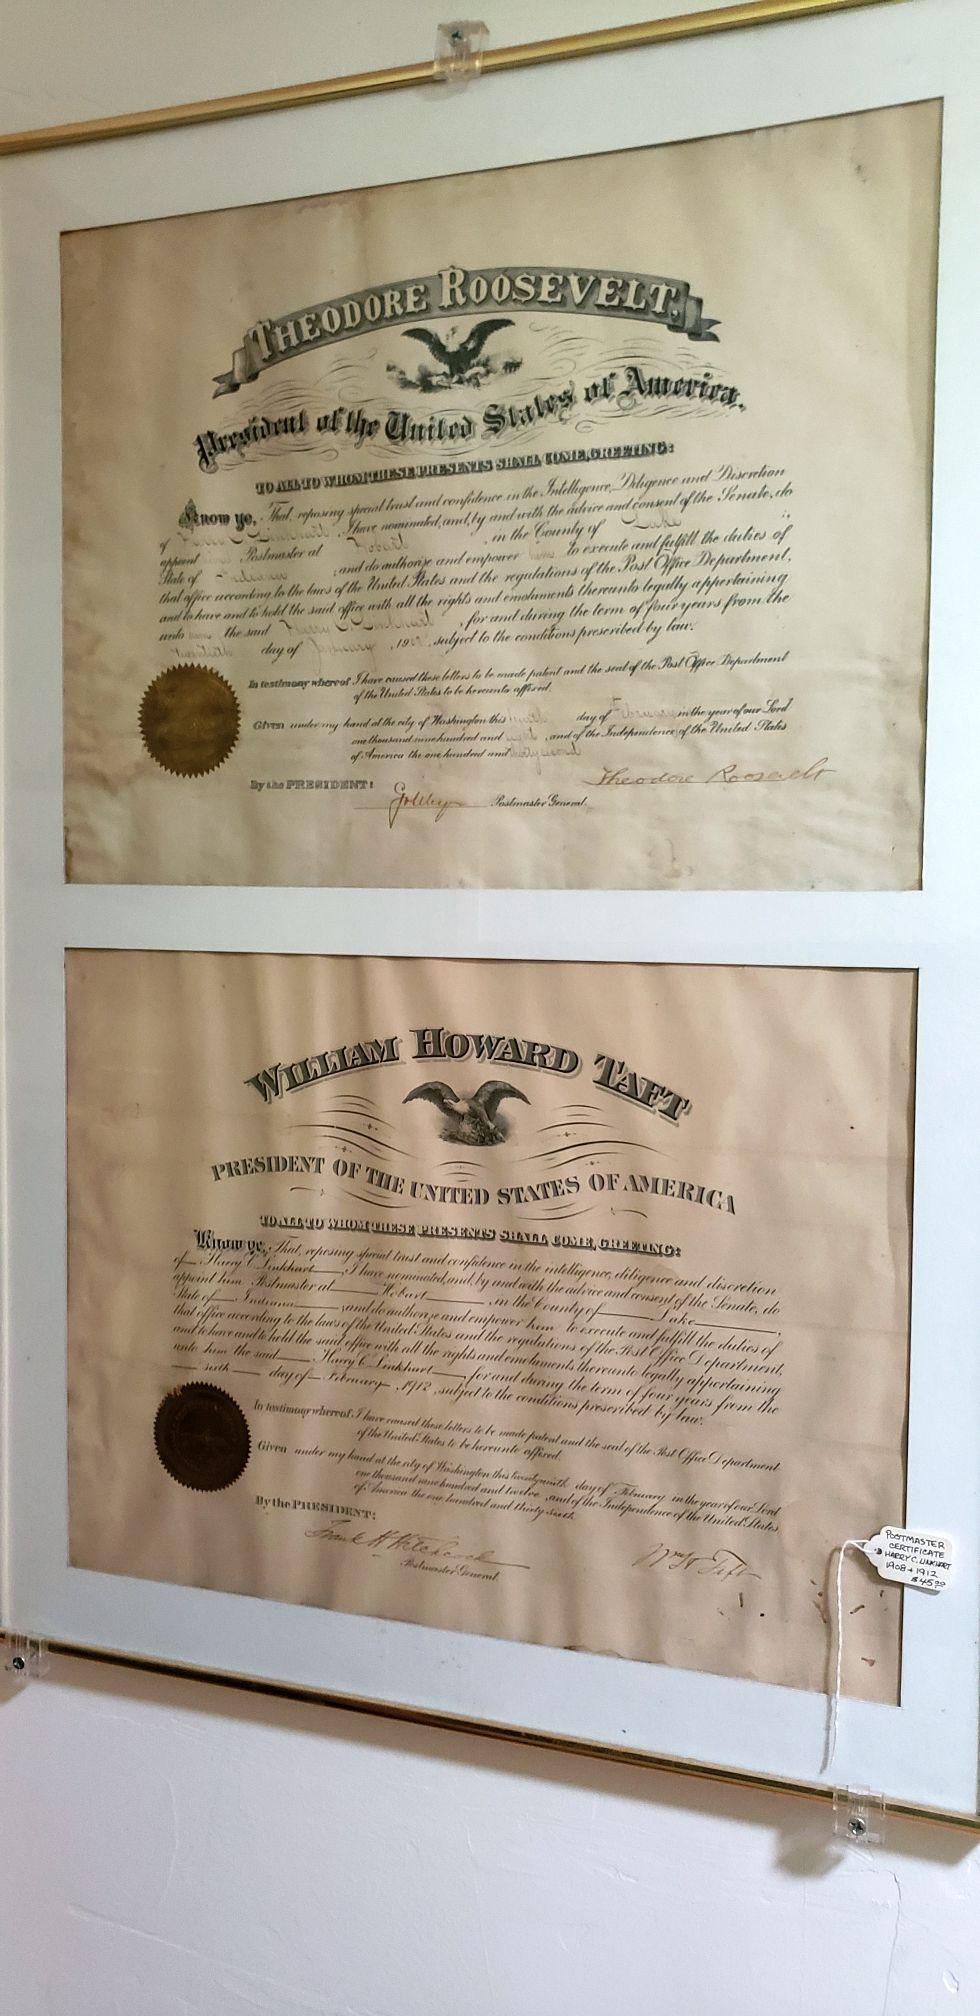 THEODORE ROOSEVELT,
President of the United States of America.
TO ALL TO WHOM THESE PRESENTS SHALL COME, GREETING:
Know ye, That, reposing special trust and confidence in the Intelligence, Diligence and Discretion
of Harry C. Linkhart, I have nominated, and, by and with the advice and consent of the Senate, do
appoint him Postmaster at Hobart, in the County of Lake,
State of Indiana, and do authorize and empower him to execute and fulfill the duties of
that office according to the laws of the United States and the regulations of the Post Office Department,
and to have and to hold the said office with all the rights and emoluments thereunto legally appertaining
unto him the said Harry C. Linkhart, for and during the term of four years from the
twentieth day of January, 1908, subject to the conditions prescribed by law.
In testimony whereof I have caused these letters to be made patent and the seal of the Post Office Department
of the United States to be hereunto affixed.
Given under my hand at the city of Washington this day of February in the year of our Lord
one thousand nine hundred and eight, and of the Independence of the United States
of America the one hundred and thirty second
By the PRESIDENT:
Theodore Roosevelt
Postmaster General.
WILLIAM HOWARD TAFT
PRESIDENT OF THE UNITED STATES OF AMERICA
TO ALL TO WHOM THESE PRESENTS SHALL COME, GREETING:
Know ye, That, reposing special trust and confidence in the intelligence, diligence and discretion
of Harry C. Linkhart, I have nominated, and, by and with the advice and consent of the Senate, do
appoint him Postmaster at Hobart, in the County of Lake,
State of Indiana, and do authorize and empower him to execute and fulfill the duties of
that office according to the laws of the United States and the regulations of the Post Office Department,
and to have and to hold the said office with all the rights and emoluments thereunto legally appertaining
unto him the said Harry C. Linkhart, for and during the term of four years from the
sixth day of February, 1912, subject to the conditions prescribed by law.
In testimony whereof I have caused these letters to be made patent and the seal of the Post Office Department
of the United States to be hereunto affixed.
Given under my hand at the city of Washington this twentyninth day of February in the year of our Lord
one thousand nine hundred and twelve, and of the Independence of the United States
of America the one hundred and thirty sixth
By the PRESIDENT:
Frank H Hitchcock
Postmaster General.
Wm H Taft
POSTMASTER
CERTIFICATE
HARRY C. LINKHART
1908 + 1912
$45.00